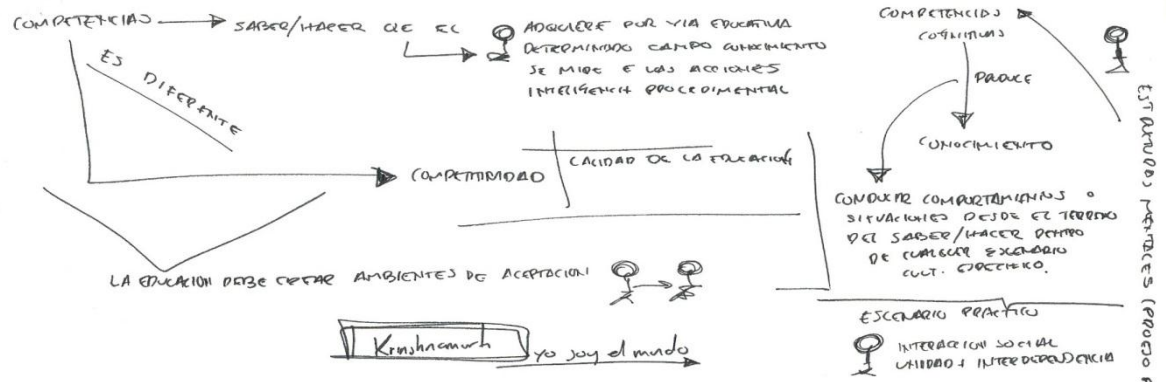 COMPETENCIAS
SABER/HACER QUE EL
ADQUIERE POR VIA EDUCATIVA
DETERMINADO CAMPO CONOCIMIENTO
SE MIDE E LAS ACCIONES
INTELIGENCIA PROCEDIMENTAL
ES DIFERENTE
COMPETITIVIDAD
CALIDAD DE LA EDUCACION
LA EDUCACION DEBE CREAR AMBIENTES DE ACEPTACION
Krishnamurti
yo soy el mundo
COMPETENCIAS
COGNITIVAS
PRODUCE
CONOCIMIENTO
CONDUCIR COMPORTAMIENTOS O
SITUACIONES DESDE EL TERRENO
DEL SABER/HACER DENTRO
DE CUALQUIER ESCENARIO
CULT. ESPECIFICO.
ESCENARIO PRACTICO
INTERACCION SOCIAL
UNIDAD E INTERDEPENDENCIA
ESTRUCTURAS MENTALES